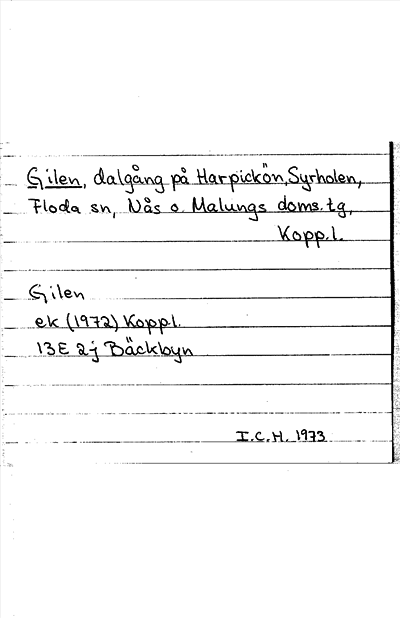 Gilen, dalgång på Harpickön, Syrholen,
Floda sn, Nås o. Malungs doms. tg,
Kopp.l.
Gilen
ek (1972) Kopp.l.
13E 2j Bäckbyn
I.C.H. 1973